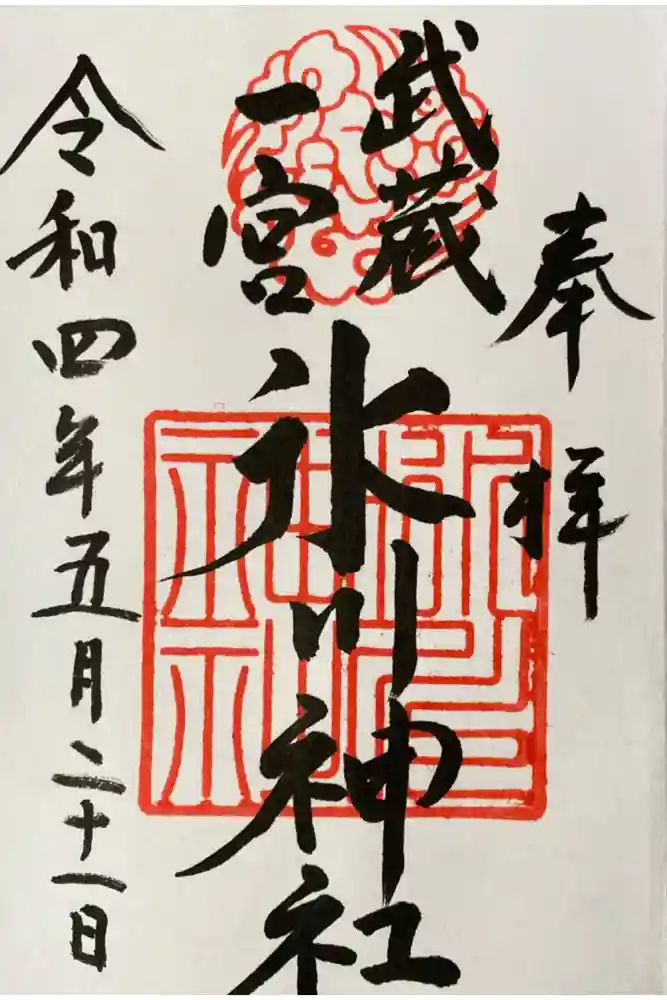 奉拝
武蔵
一宮
氷川神社
令和四年五月二十一日